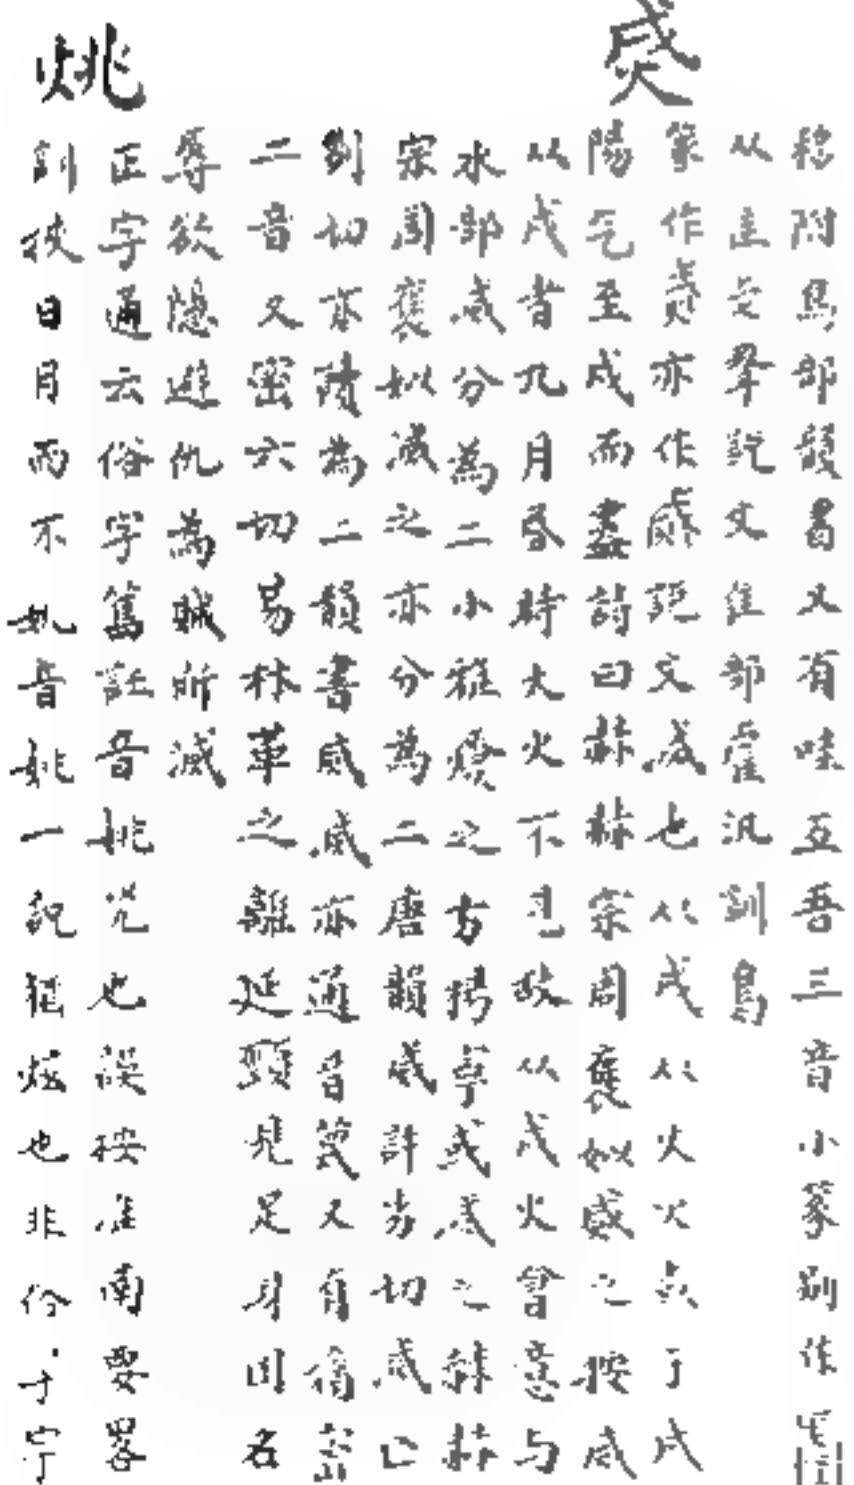 附馬部韻書又有哇互吾三音小篆別作
从圭聲說文隹部雚汎訓鳥
烕
篆作烕亦作烕說文烕也从戌从火火死于戌
陽气至戌而盡詩曰赫赫宗周褒姒烕之按烕
从戌者九月昏時大火不見故从戌火會意与
水部滅分為二小雅燎之方揚寧或烕之赫赫
宗周褒姒滅之亦分為二唐韻烕許劣切烕亡
列切亦讀為二韻書烕烕亦通音蔑又有密
二音又蜜六切易林革之離延頸見足身困名
辱欲隱避仇為賊所滅
烑
正字通云俗字舊註音姚光也誤按淮南要畧
訓挾日月而不烑音姚一說猶炫也非俗字